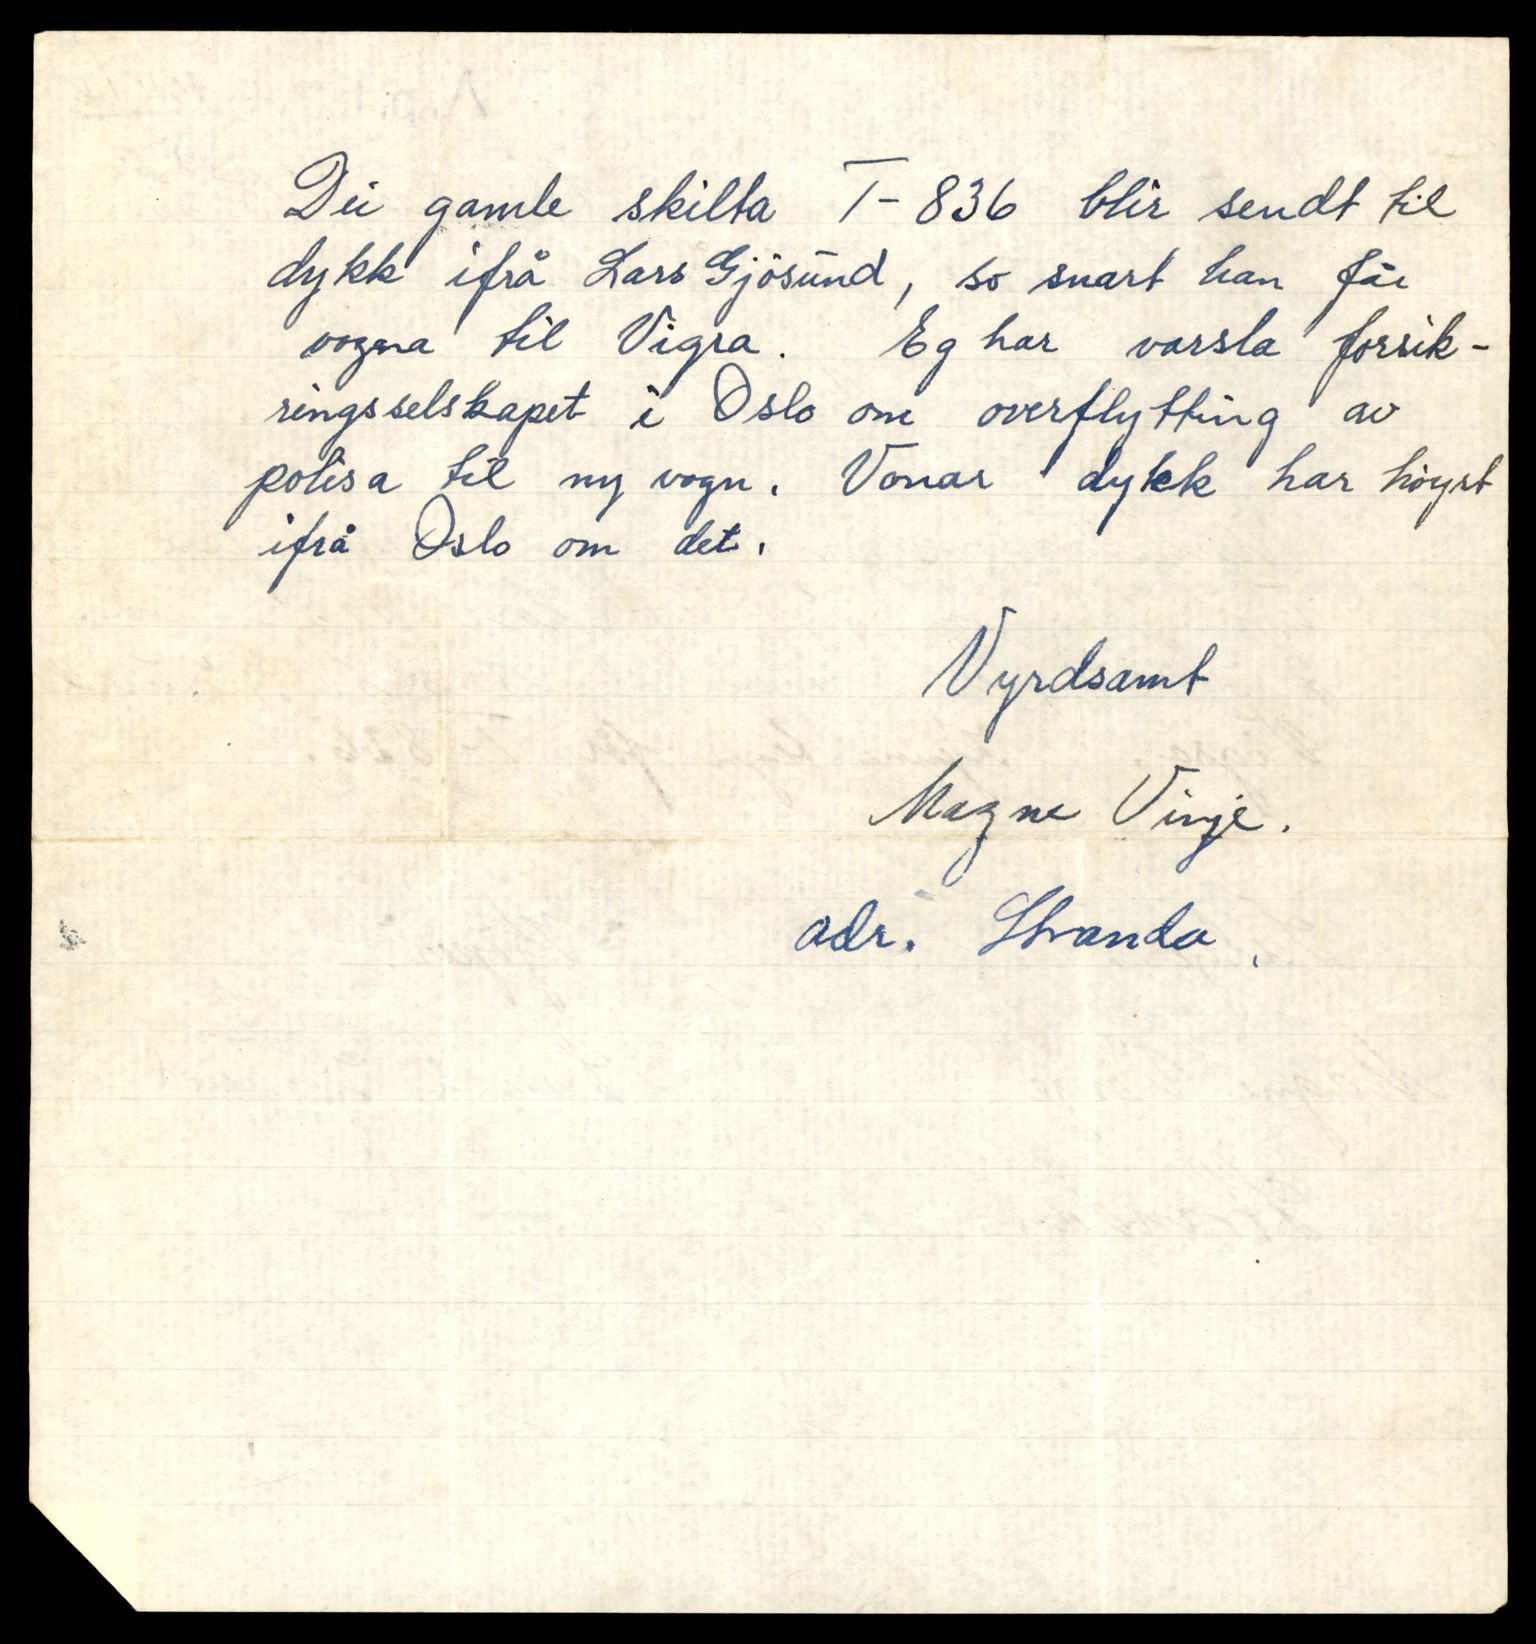 Dei gamle skilta T-836 blir sendt til
dykk ifrå Lars Gjösund, so snart han får
vogna til Vigra. Eg har varsla forsik-
ringsselskapet i Oslo om overflytting av
polisa til ny vogn. Vonar dykk har höyrt
ifrå Oslo om det.
Vyrdsamt
Magne Vinje.
adr. Stranda.